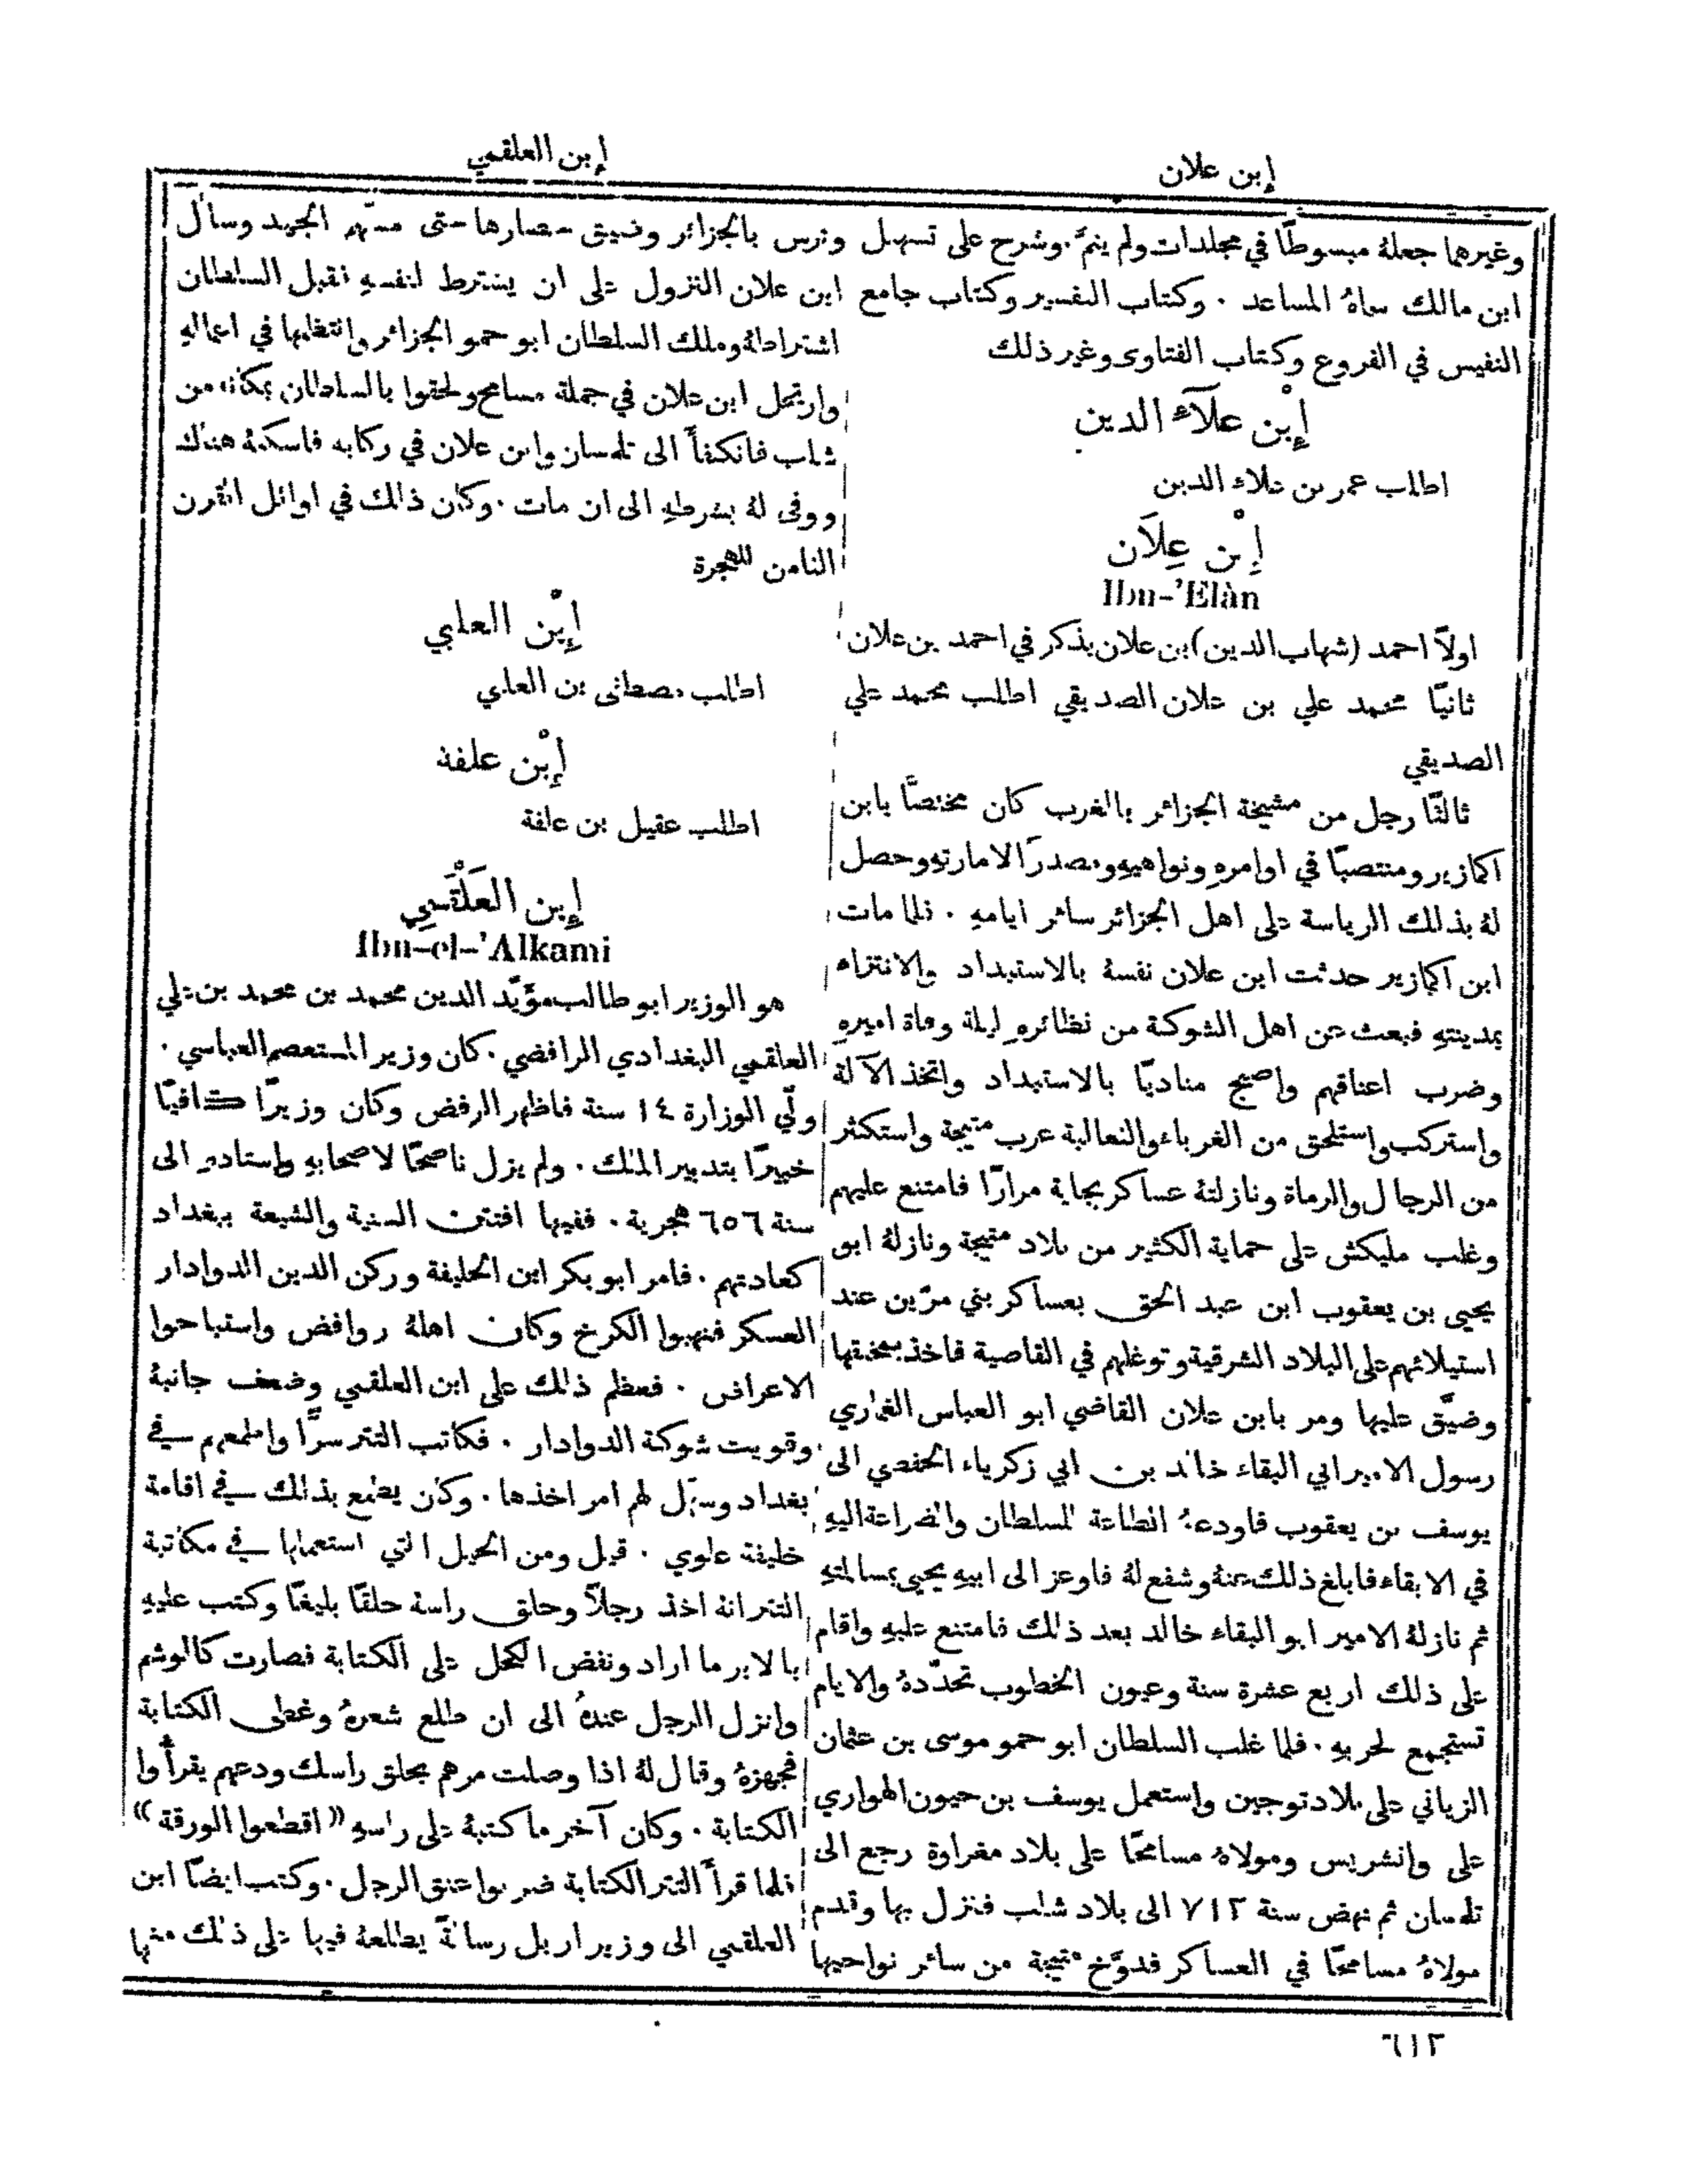 إبن علان
إبن العلقمي
وغيرها جعلهُ مبسوطًا في مجلدات ولم يتمَّ. وشرح على تسهيل
ابن مالك سماهُ المساعد. وكتاب التفسير وكتاب جامع
النفيس في الفروع وكتاب الفتاوى وغير ذلك
إِبْن علآء الدين
اطلب عمر بن علاء الدين
إِبْن عِلاَن
Ibn-'Elàn
اولاً احمد (شهاب الدين) بن علان يذكر في احمد بن علان
ثانيًا محمد علي بن علان الصديقي اطلب محمد علي
الصديقي
ثالثًا رجل من مشيخة الجزائر بالغرب كان مختصًّا بابن
اكمازير ومنتصبًا في اوامرهِ ونواهيهِ ومصدرًا لامارتهِ وحصل
لهُ بذلك الرياسة على اهل الجزائر سائر ايامهِ. فلما مات
ابن اكمازير حدثت ابن علان نفسهُ بالاستبداد والانتزاء
بمدينتهِ فبعث عن اهل الشوكة من نظائرهِ ليلة وفاة اميرهِ
وضرب اعناقهم واصبح مناديًا بالاستبداد واتخذ الآلة
واستركب واستلحق من الغرباء والثعالبة عرب متيجة واستكثر
من الرجال والرماة ونازلتهُ عساكر بجاية مرارًا فامتنع عليهم
وغلب مليكش على حماية الكثير من بلاد متيجة ونازلهُ ابو
يحيى بن يعقوب ابن عبد الحق بعساكر بني مرّين عند
استيلائهم على البلاد الشرقية وتوغلهم في القاصية فاخذ بمخنقها
وضيَّق عليها ومر بابن علان القاضي ابو العباس الغماري
رسول الامير ابي البقاء خالد بن ابي زكرياء الحفصي الى
يوسف بن يعقوب فاودعهُ الطاعة للسلطان والضراعة اليهِ
في الابقاء فابلغ ذلك عنهُ وشفع لهُ فاوعز الى ابيهِ يحيى بمسالمتهِ
ثم نازلهُ الامير ابو البقاء خالد بعد ذلك فامتنع عليهِ واقام
على ذلك اربع عشرة سنة وعيون الخطوب تحدّدهُ والايام
تستجمع لحربهِ. فلما غلب السلطان ابو حمو موسى بن عثمان
الزياني على بلاد توجين واستعمل يوسف بن حيون الهواري
على وانشريس ومولاهُ مسامحًا على بلاد مغراوة رجع الى
تلمسان ثم نهض سنة ٧١٢ الى بلاد شلب فنزل بها وقدم
مولاهُ مسامحًا في العساكر فدوَّخ متيجة من سائر نواحيها
وترس بالجزائر وضيق حصارها حتى مسّهم الجهد وسأل
ابن علان النزول على ان يشترط لنفسهِ فقبل السلطان
اشتراطهُ وملك السلطان ابو حمو الجزائر وانتظمها في اعمالهِ
وارتحل ابن علان في جملة مسامح ولحقوا بالسلطان بمكانهِ من
شلب فانكفأَ الى تلمسان وابن علان في ركابه فاسكنهُ هنالك
ووفى لهُ بشرطهِ الى ان مات. وكان ذلك في اوائل القرن
الثامن للهجرة
إِبْن العلبي
اطلب مصطفى بن العلبي
إِبْن علفة
اطلب عقيل بن علفة
إِبن العَلْقَمِي
Ibn-el-'Alkami
هو الوزير ابو طالب مؤَيّد الدين محمد بن محمد بن علي
العلقمي البغدادي الرافضي. كان وزير المستعصم العباسي.
ولّي الوزارة ١٤ سنة فاظهر الرفض وكان وزيرًا كافيًا
خبيرًا بتدبير الملك. ولم يزل ناصحًا لاصحابهِ واستاذهِ الى
سنة ٦٥٦ هجرية. ففيها افتتن السنية والشيعة ببغداد
كعادتهم. فامر ابو بكر ابن الخليفة وركن الدين الدوادار
العسكر فنهبوا الكرخ وكان اهلهُ روافض واستباحوا
الاعراض. فعظم ذلك على ابن العلقمي وضعف جانبهُ
وقويت شوكة الدوادار. فكاتب التتر سرًّا واطمعهم في
بغداد وسهَّل لهم امر اخذها. وكان يطمع بذلك في اقامة
خليفة علوي. قيل ومن الحيل التي استعملها في مكاتبة
التتر انهُ اخذ رجلاً وحلق راسهُ حلقًا بليغًا وكتب عليهِ
بالابر ما اراد ونفض الكحل على الكتابة فصارت كالوشم
وانزل الرجل عندهُ الى ان طلع شعرهُ وغطى الكتابة
فجهزهُ وقال لهُ اذا وصلت مرهم بحلق راسك ودعهم يقرأُوا
الكتابة. وكان آخر ما كتبهُ على راسهِ «اقطعوا الورقة»
فلما قرأَ التتر الكتابة ضربوا عنق الرجل. وكتب ايضًا ابن
العلقمي الى وزير اربل رسالةً يطلعهُ فيها على ذلك منها
٦١٢